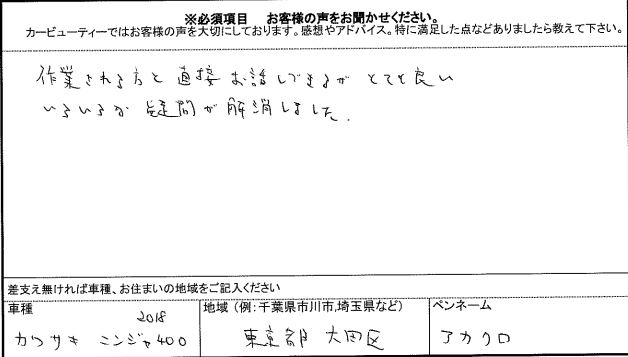 ※必須項目　お客様の声をお聞かせください。
カービューティーではお客様の声を大切にしております。感想やアドバイス。特に満足した点などありましたら教えて下さい。
作業される方と直接お話しできるが とても良い
いろいろな疑問が解消しました.
差支え無ければ車種、お住まいの地域をご記入ください
車種
地域（例:千葉県市川市,埼玉県など）
ペンネーム
2018
カワサキ ニンジャ400
東京都 大田区
アカクロ